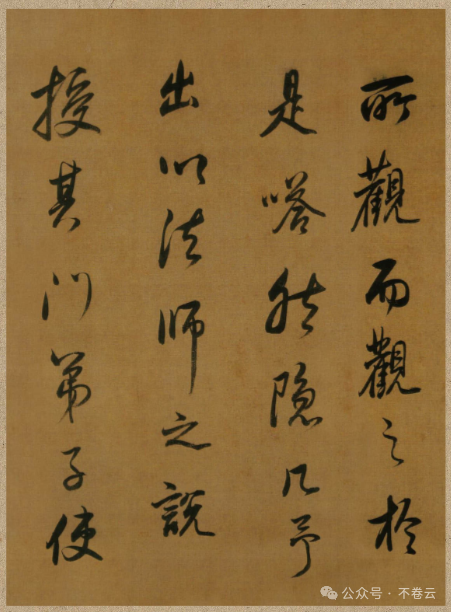 所觀而觀之於
是嗒然隱几予
出以法師之說
授其門弟子使
公众号 · 不卷云